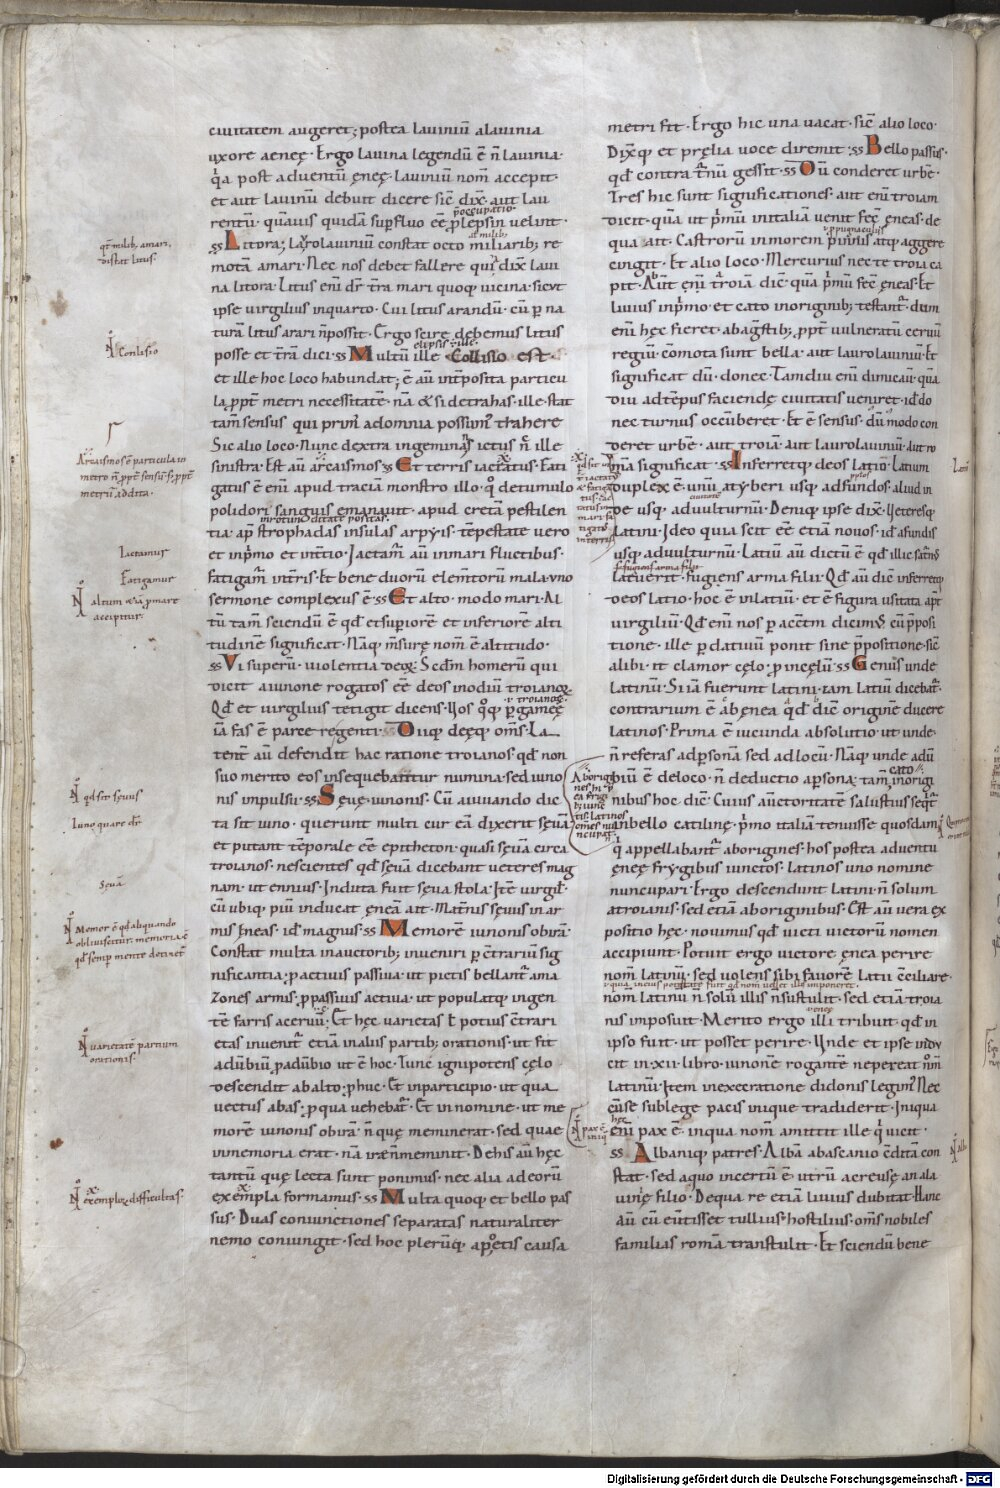 ciuitatem augeret; postea lauiniū alauinia
uxore aeneę · Ergo lauina legendū ē n̄ lauinia ·
q̓a post aduentū ęneę · lauiniū nom̄ accepit ·
et aut lauinū debuit dicere sic̄ dix̄ · aut lau
rentū · quāuis quidā sup̄fluo eē p̄lepsin uelint ·
p̄occupatio ·
Littora; lauroluiniū constat octo miliarib; re
motā amari · Nec nos debet fallere quia dix̄ laui
na litora · Litus enī dr̄ tr̄a mari quoq; uicina · sicut
ipse uirgilius inquarto · Cui litus arandū · cū p̱ na
turā litus arari n̄possit · Ergo scire debemus litus
posse et tr̄ā dici · Multū ille · Collisio est ·
elipsis · ille ·
et ille hoc loco habundat; ē aū int̄posita particu
la · ppt̄ metri necessitatē · nā & si detrahas · ille · stat
tam̄ sensus
Sic alio loco · Nunc dextra ingeminans ictus n̄c ille
sinistra · Est aū arcaismos · Et terris iactatus · Fati
gatus ē enī apud traciā monstro illo · q̊ detumulo
polidori sanguis emanauit · apud cretā pestilen
tia · ap̄ strophadas insulas arpyis · tēpestate uero
inrotunditate positas ·
et inp̄mo et intertio · Jactam̄ aū inmari fluctibus ·
fatigam̄ int̄ris · Et bene duorū elem̄torū mala · uno
sermone complexus ē · Et alto · modo mari · Al
tū tam̄ sciendū ē qd̄ et sup̱iorē et inferiorē alti
tudinē significat · Naq; m̄surę nom̄ ē altitudo ·
Vi superū · uiolentia deoꝝ · Scdm̄ homerū qui
dicit aiunone rogatos eē deos inodiū troianoꝝ ·
Qd̄ et uirgilius tetigit dicens · Uos q̊q; p̱gameę
iā fas ē parce regenti · Diiq; deęq; om̄s · La
tent̄ aū defendit hac ratione troianos · qd̄ non
suo merito eos insequebantur numina · sed iuno
nis impulsu · Sęuę iunonis · Cū aiuuando dic
ta sit iuno · querunt multi cur eā dixerit sęuā
et putant tēporale eē epitheton · quasi sęua circa
troianos · nescientes qd̄ sęuā dicebant ueteres mag
nam · ut ennius · Induta fuit sęua stola · Itē uirgil̄ ·
cū ubiq; piū inducat ęneā ait · Mat̄nis sęuus in ar
mis ęneas · id ē magnus · Memorē iunonis obirā ·
Constat multa inauctorib; inueniri p̱ c̄trariū sig
nificantia · p̱ actiuis passiua · ut pictis bellant̄ ama
zones armis · p̱ passiuis actiua · ut populatq; ingen
tē farris aceruū · Et hęc uarietas ł potius c̄trari
etas inuenit̄ etiā inaliis partib; orationis · ut sit
adūbiū p̱adūbio ut ē hoc · Iunc ignipotens cęlo
descendit ab alto · p̱ huc · Et inparticipio · ut qua
uectus abas · p̱ qua uehebat̄ · Et in nomine · ut me
morē iunonis obirā · n̄ quę meminerat · sed quae
inmemoria erat ·
tantū quę lecta sunt ponimus · nec alia adeorū
exempla formamus · Multa quoque et bello pas
sus · Duas coniunctiones separatas naturaliter
nemo coniungit · sed hoc plerūq; a poetis causa
metri fit · Ergo hic una uacat · sic̄ alio loco ·
Dix̄q; et pręlia uoce diremit · Bello passus ·
qd̄ contra turnū gessit · Dū conderet urbē ·
Tres hic sunt significationes · aut enī troiam
dicit · quā ut p̄mū initaliā uenit fec̄ ęneas · de
qua ait · Castrorū inmorem pinnis atq; aggere
.i. p̱pugnaculis
cingit · Et alio loco · Mercurius nec te troia ca
pit · Aut enī troiā dic̄ · quā p̄mū fec̄ ęneas · Et
liuius inp̄mo et cato inoriginib; testant̄ · dum
enī hęc fieret · ab agrestib; ppt̄ uulneratū ceruū
regiū · c̄mota sunt bella · aut laurolauiniū · Et
significat dū · donec · Tamdiu enī dimicauit · quā
diu ad tēpus faciendę ciuitatis ueniret · id ē do
nec turnus occūberet · Et ē sensus · dū modo con
deret urbē · aut troiā · aut laurolauiniū · aut ro
mā significat · Inferretq; deos latio · Latium
duplex ē · unū a tyberi usq; ad fundos · aliud in
de usq; aduulturnū · Deniq; ipse dix̄ · Ueteresq;
latini · Ideo quia scit eē etiā nouos · id ē a fundis
usq; aduulturnū · Latiū aū dictū ē qd̄ illic saturn̄
latuerit · fugiens arma filii · Qd̄ aū dic̄ inferretq;
deos latio · hoc ē inlatiū · et ē figura usitata apt̄
uirgiliū · Qd̄ enī nos p̱ accentm̄ dicim̄ · cū p̱posi
tione · ille p̱ datiuū ponit sine p̱positione · sic̄
alibi · it clamor cęlo · p̱ incęlū · Genus unde
latinū · Si iā fuerunt latini · iam latiū dicebat̄ ·
contrarium ē ab ęnea q̓d dic̄ originē ducere
latinos · Prima ē iucunda absolutio · ut unde ·
n̄ referas adp̱sonā sed adlocū · Naq; unde adū
biū ē deloco · n̄ deductio apsona · tam̄ cato inorigi
nibus hoc dic̄ · Cuius auctoritatē salustius seqt̄
inbello catilinę · p̄mo italiā tenuisse quosdam
q̓ appellabant̄ aborigines · hos postea aduentu
ęneę frygibus iunctos · latinos uno nomine
nuncupari · Ergo descendunt latini · n̄ solum
atroianis · sed etiā aboriginibus · Est aū uera ex
positio hęc · nouimus qd̄ uicti uictorū nomen
accipiunt · Potuit ergo uictore ęnea perire
nom̄ latinū · sed uolens sibi fauorē latii c̄ciliare ·
.i. quia incuius potestate fuit qd̄ nom̄ uellet illis imponeret ·
nom latinū n̄ solū illis n̄ sustulit · sed etiā troia
nis imposuit · Merito ergo illi tribuit qd̄ in
ipso fuit · ut posset perire · Unde et ipse indu
cit in · xii · libro · iunonē rogantē ne pereat nom̄
latinū · Item inexecratione didonis legim̄ · Nec
cū se sub lege pacis inique tradiderit · Iniqua
enī pax ē · inqua nom̄ amittit ille q̓ uicit ·
Albaniq; patres · Albā ab ascanio c̄ditā con
stat · sed aquo incertū ē · utrū acreusę an a la
uinię filio · Dequa re etiā liuius dubitat · Hanc
aū cū euertisset tullius hostilius · om̄s nobiles
familias romā transtulit · Et sciendū bene
qt̄ milib; amari ·
distat litus ·
Conlisio
Arcaismos ē particula in
metro n̄ ppt̄ sensū s; ppt̄
metrū addita ·
Iactamur
Fatigamur
altum etiā p̱ mare
accipitur ·
qd̄ sit sęuus
Iuno quare dr̄
sęuā
Memor ē qd̄ aliquando
obliuiscitur · memoria ē
qd̄ semp̱ mente detinet̄
uarietatē partium
orationis ·
exemploꝝ difficultas ·
Aborigi
nes hi p̱
ea frigi
b; iunc
tis · latinos
om̄es nū
ncupat̄ ·
pax ē
iniq̄
Digitalisierung gefördert durch die Deutsche Forschungsgemeinschaft - DFG